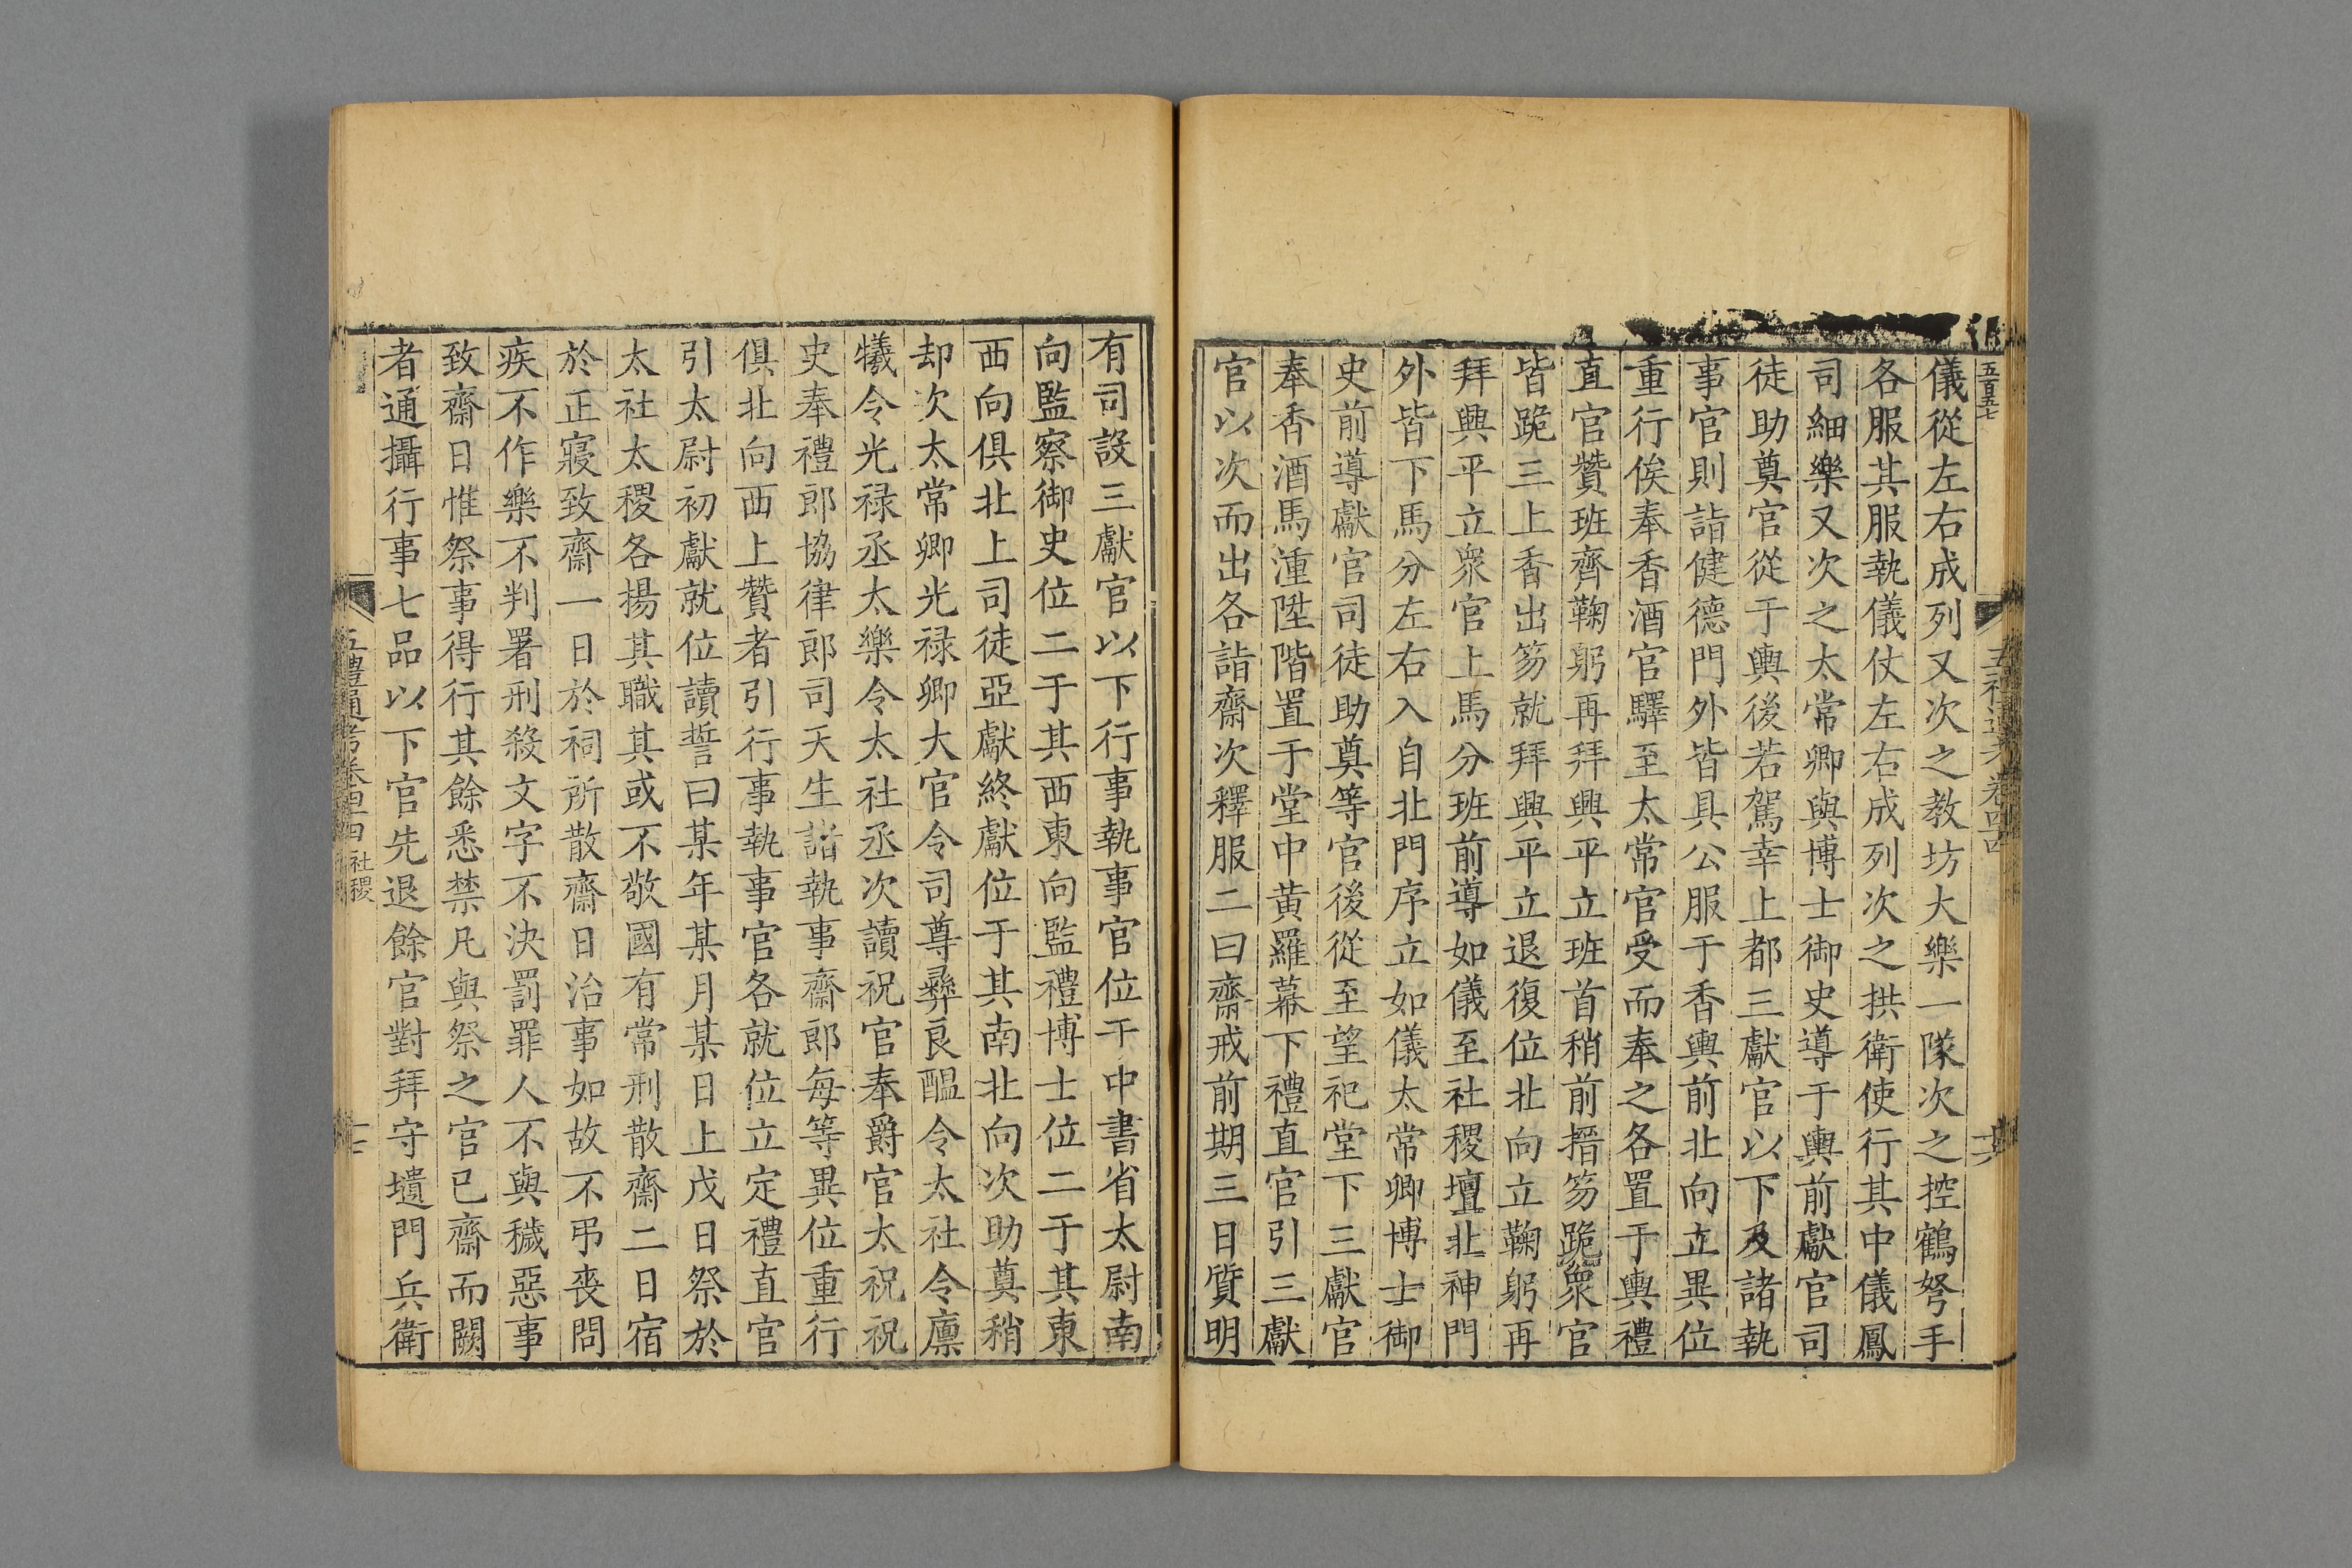 五百五七
儀從左右成列又次之教坊大樂一隊次之控鶴弩手
各服其服執儀仗左右成列次之拱衛使行其中儀鳳
司細樂又次之太常卿與博士御史導于輿前獻官司
徒助奠官從于輿後若駕幸上都三獻官以下及諸執
事官則詣健德門外皆具公服于香輿前北向立異位
重行俟奉香酒官驛至太常官受而奉之各置于輿禮
直官贊班齊鞠躬再拜興平立班首稍前搢笏跪衆官
皆跪三上香出笏就拜興平立退復位北向立鞠躬再
拜興平立衆官上馬分班前導如儀至社稷壇北神門
外皆下馬分左右入自北門序立如儀太常卿博士御
史前導獻官司徒助奠等官後從至望祀堂下三獻官
奉香酒馬湩陞階置于堂中黄羅幕下禮直官引三獻
官以次而出各詣齋次釋服二曰齋戒前期三日質明
有司設三獻官以下行事執事官位于中書省太尉南
向監察御史位二于其西東向監禮博士位二于其東
西向俱北上司徒亞獻終獻位于其南北向次助奠稍
却次太常卿光禄卿大官令司尊彝良醖令太社令廪
犧令光禄丞太樂令太社丞次讀祝官奉爵官太祝祝
史奉禮郎協律郎司天生諸執事齋郎每等異位重行
俱北向西上贊者引行事執事官各就位立定禮直官
引太尉初獻就位讀誓曰某年某月某日上戊日祭於
太社太稷各揚其職其或不敬國有常刑散齋二日宿
於正寢致齋一日於祠所散齋日治事如故不弔喪問
疾不作樂不判署刑殺文字不決罰罪人不與穢惡事
致齋日惟祭事得行其餘悉禁凡與祭之官已齋而闕
者通攝行事七品以下官先退餘官對拜守壝門兵衛
五禮通考卷四十四 社稷